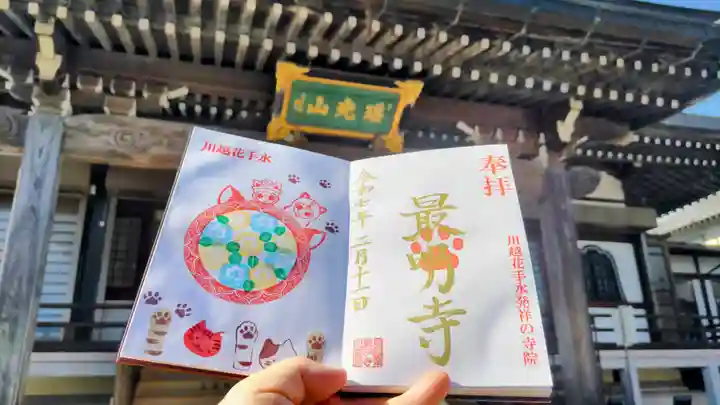 瑞光山
川越花手水
奉拝
最明寺
川越花手水発祥の寺院
令和七年二月十一日